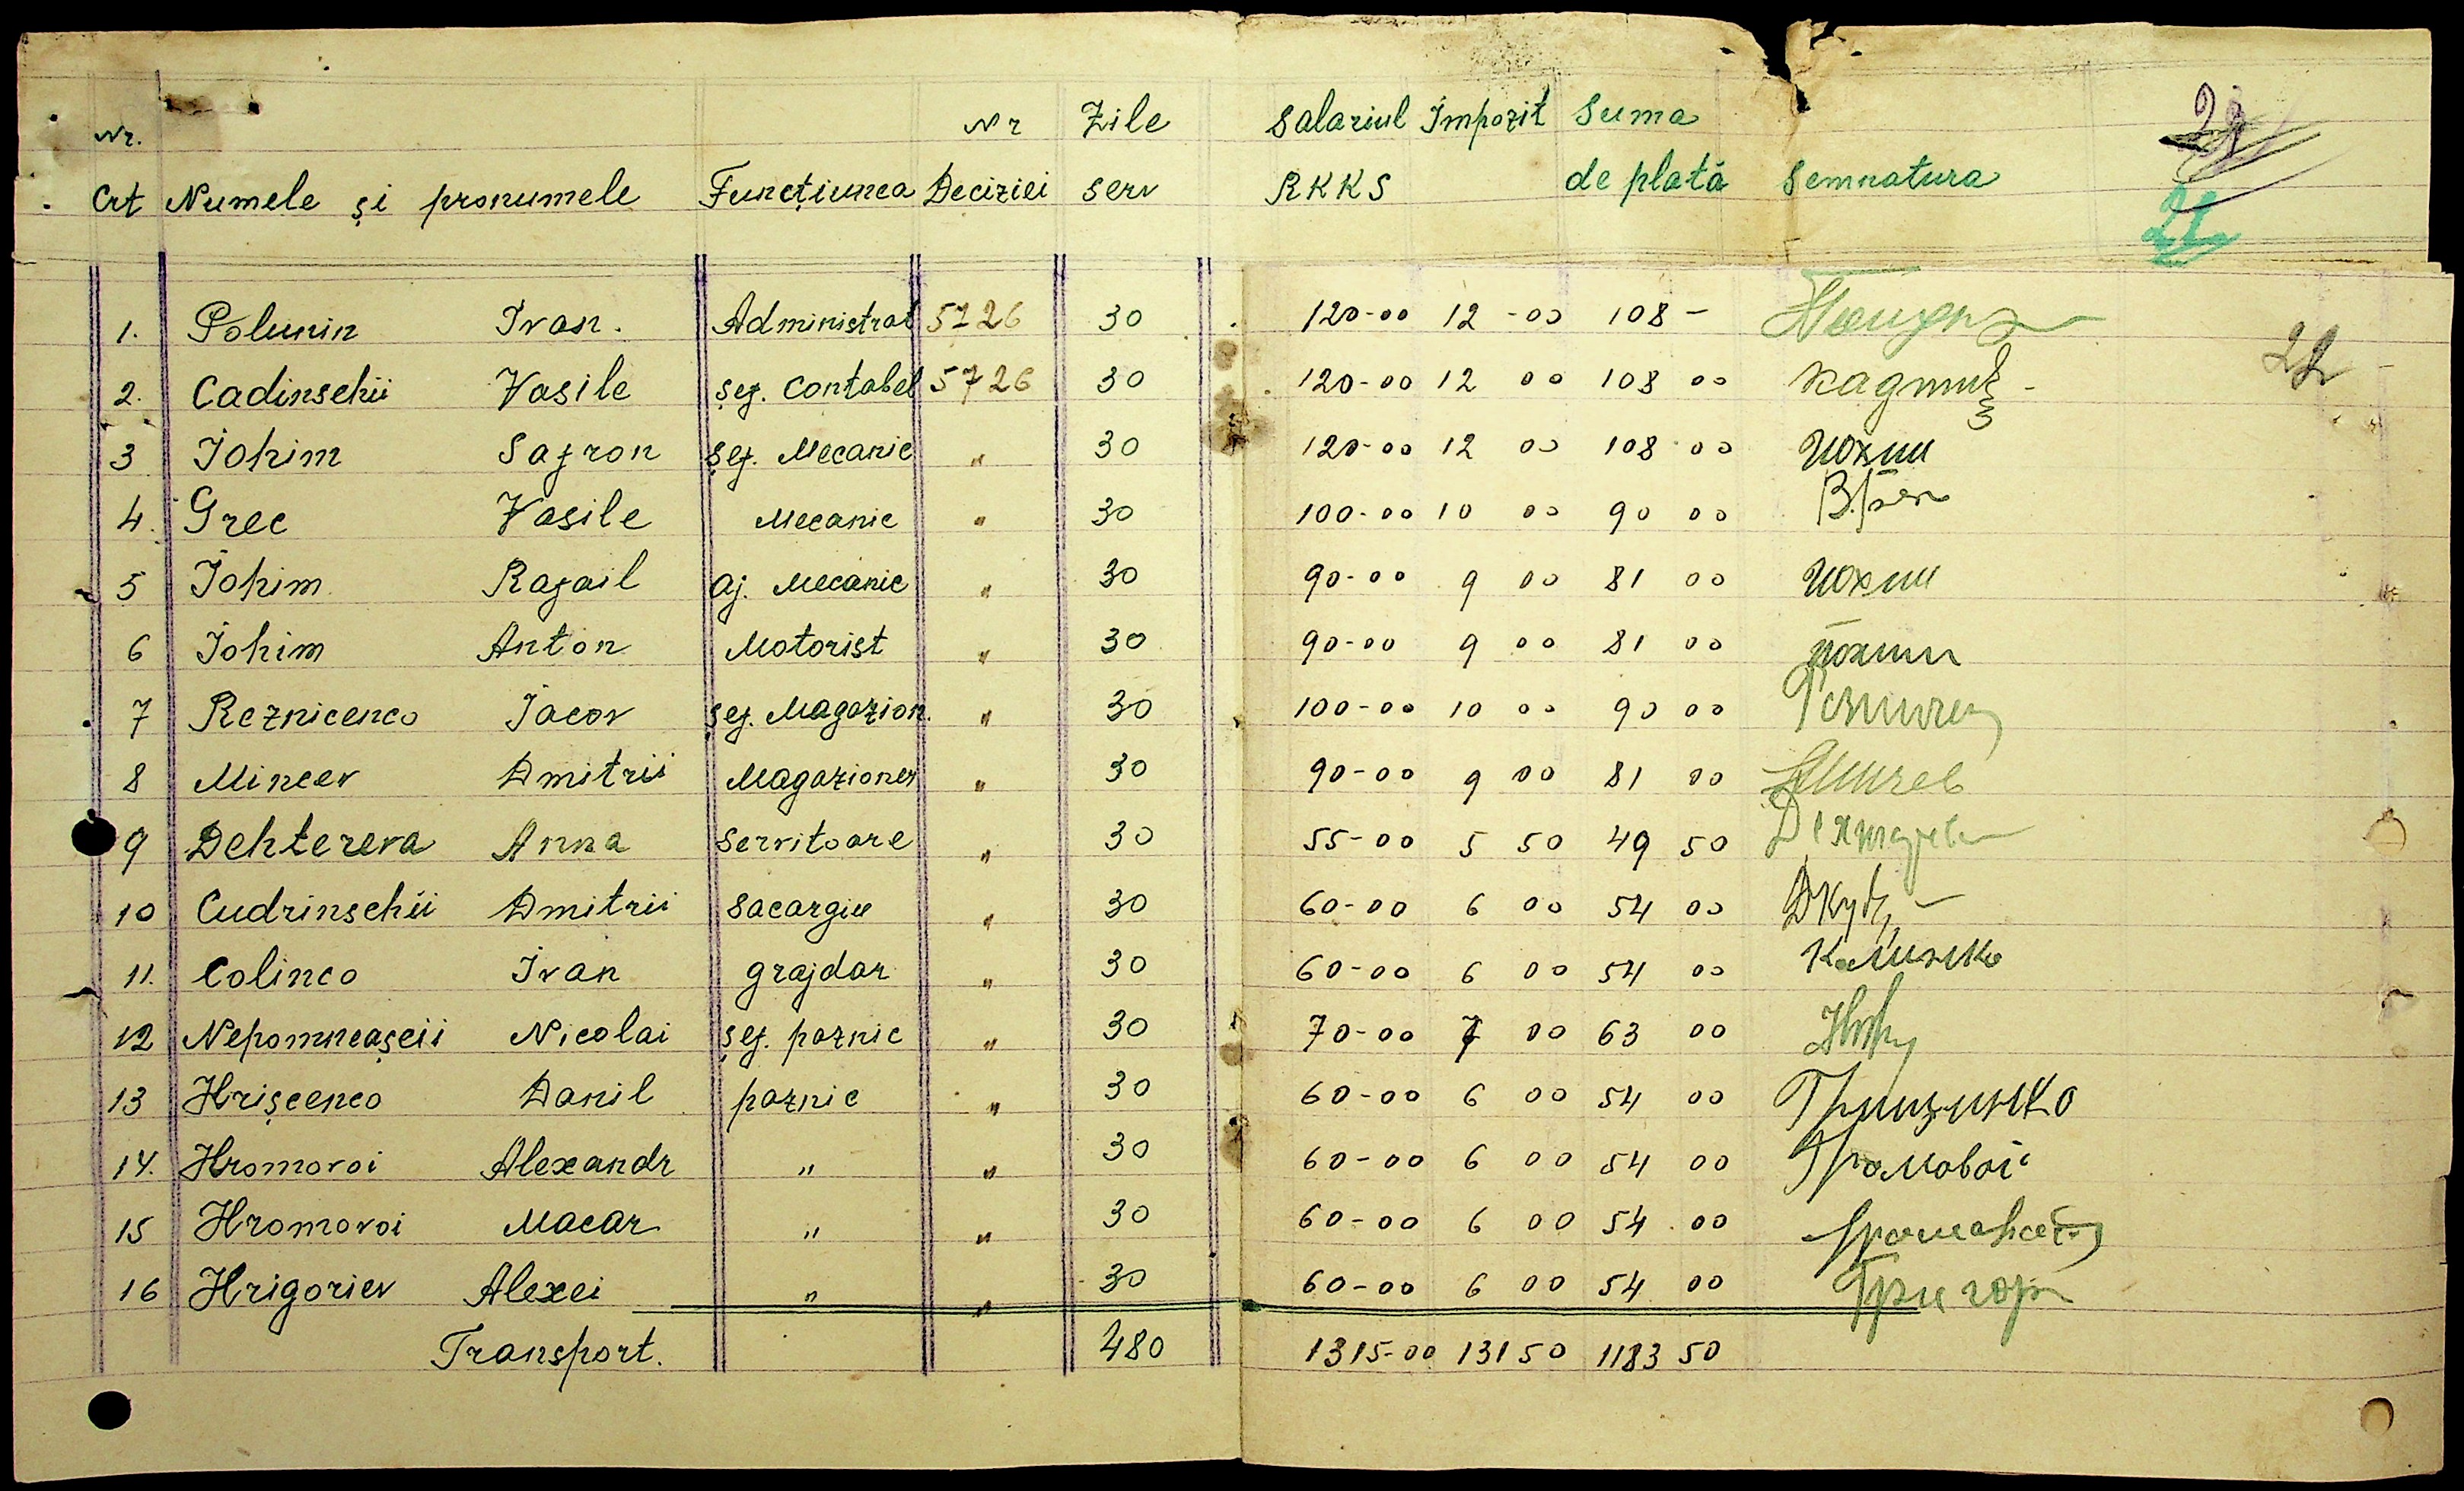 Nr. Nr Zile Salariul Impozit Suma
Crt Numele și pronumele Funcțiunea Deciziei serv RKKS de plată Semnatura
1. Polunin Ivan. Administrat 5726 30 120-00 12-00 108-
2. Cadinschii Vasile șef. Contabel 5726 30 120-00 12 00 108 00
22
3 Iohim Safron șef. Mecanic " 30 120-00 12 00 108 00 Йохим
4. Grec Vasile Mecanic " 30 100-00 10 00 90 00
5 Iohim Rafail aj. Mecanic " 30 90-00 9 00 81 00 Йохим
6 Iohim Anton Motorist " 30 90-00 9 00 81 00 йохим
7 Reznicenco Iacov șef. Magazion. " 30 100-00 10 00 90 00
8 Mincev Dmitrii Magazioner " 30 90-00 9 00 81 00 Минчев
9 Dehtereva Anna Servitoare " 30 55-00 5 50 49 50
10 Cudrinschii Dmitrii Sacargiu " 30 60-00 6 00 54 00
11. Colinco Ivan grajdar " 30 60-00 6 00 54 00
12 Nepomneașcii Nicolai șef. paznic " 30 70-00 7 00 63 00
13 Hrișcenco Danil paznic " 30 60-00 6 00 54 00
14. Hromovoi Alexandr " " 30 60-00 6 00 54 00 Громовой
15 Hromovoi Macar " " 30 60-00 6 00 54 00
16 Hrigoriev Alexei " " 30 60-00 6 00 54 00
Transport. 480 1315-00 131 50 1183 50